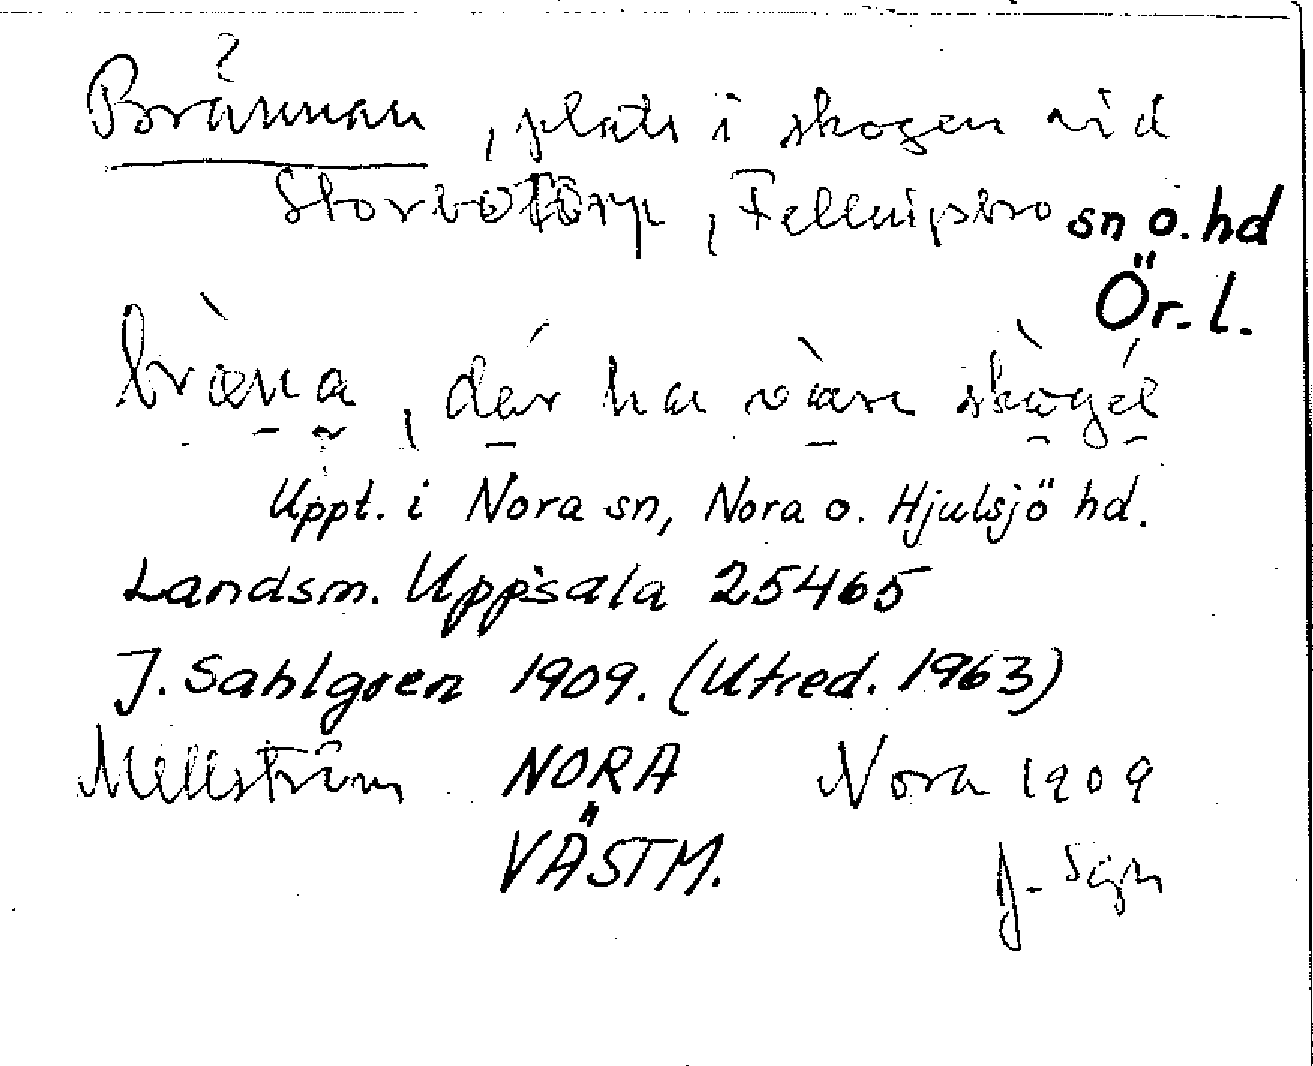 ?
Brännan, plats i skogen vid
Storbotorp, Fellingsbro sn o. hd
Ör. l.
bræ̀na, dǽr ha vàra skògél
Uppt. i Nora sn, Nora o. Hjulsjö hd.
Landsm. Uppsala 25465
J. Sahlgren 1909. (Utred. 1963)
Mellström NORA Nora 1909
VÄSTM. J. Sgn